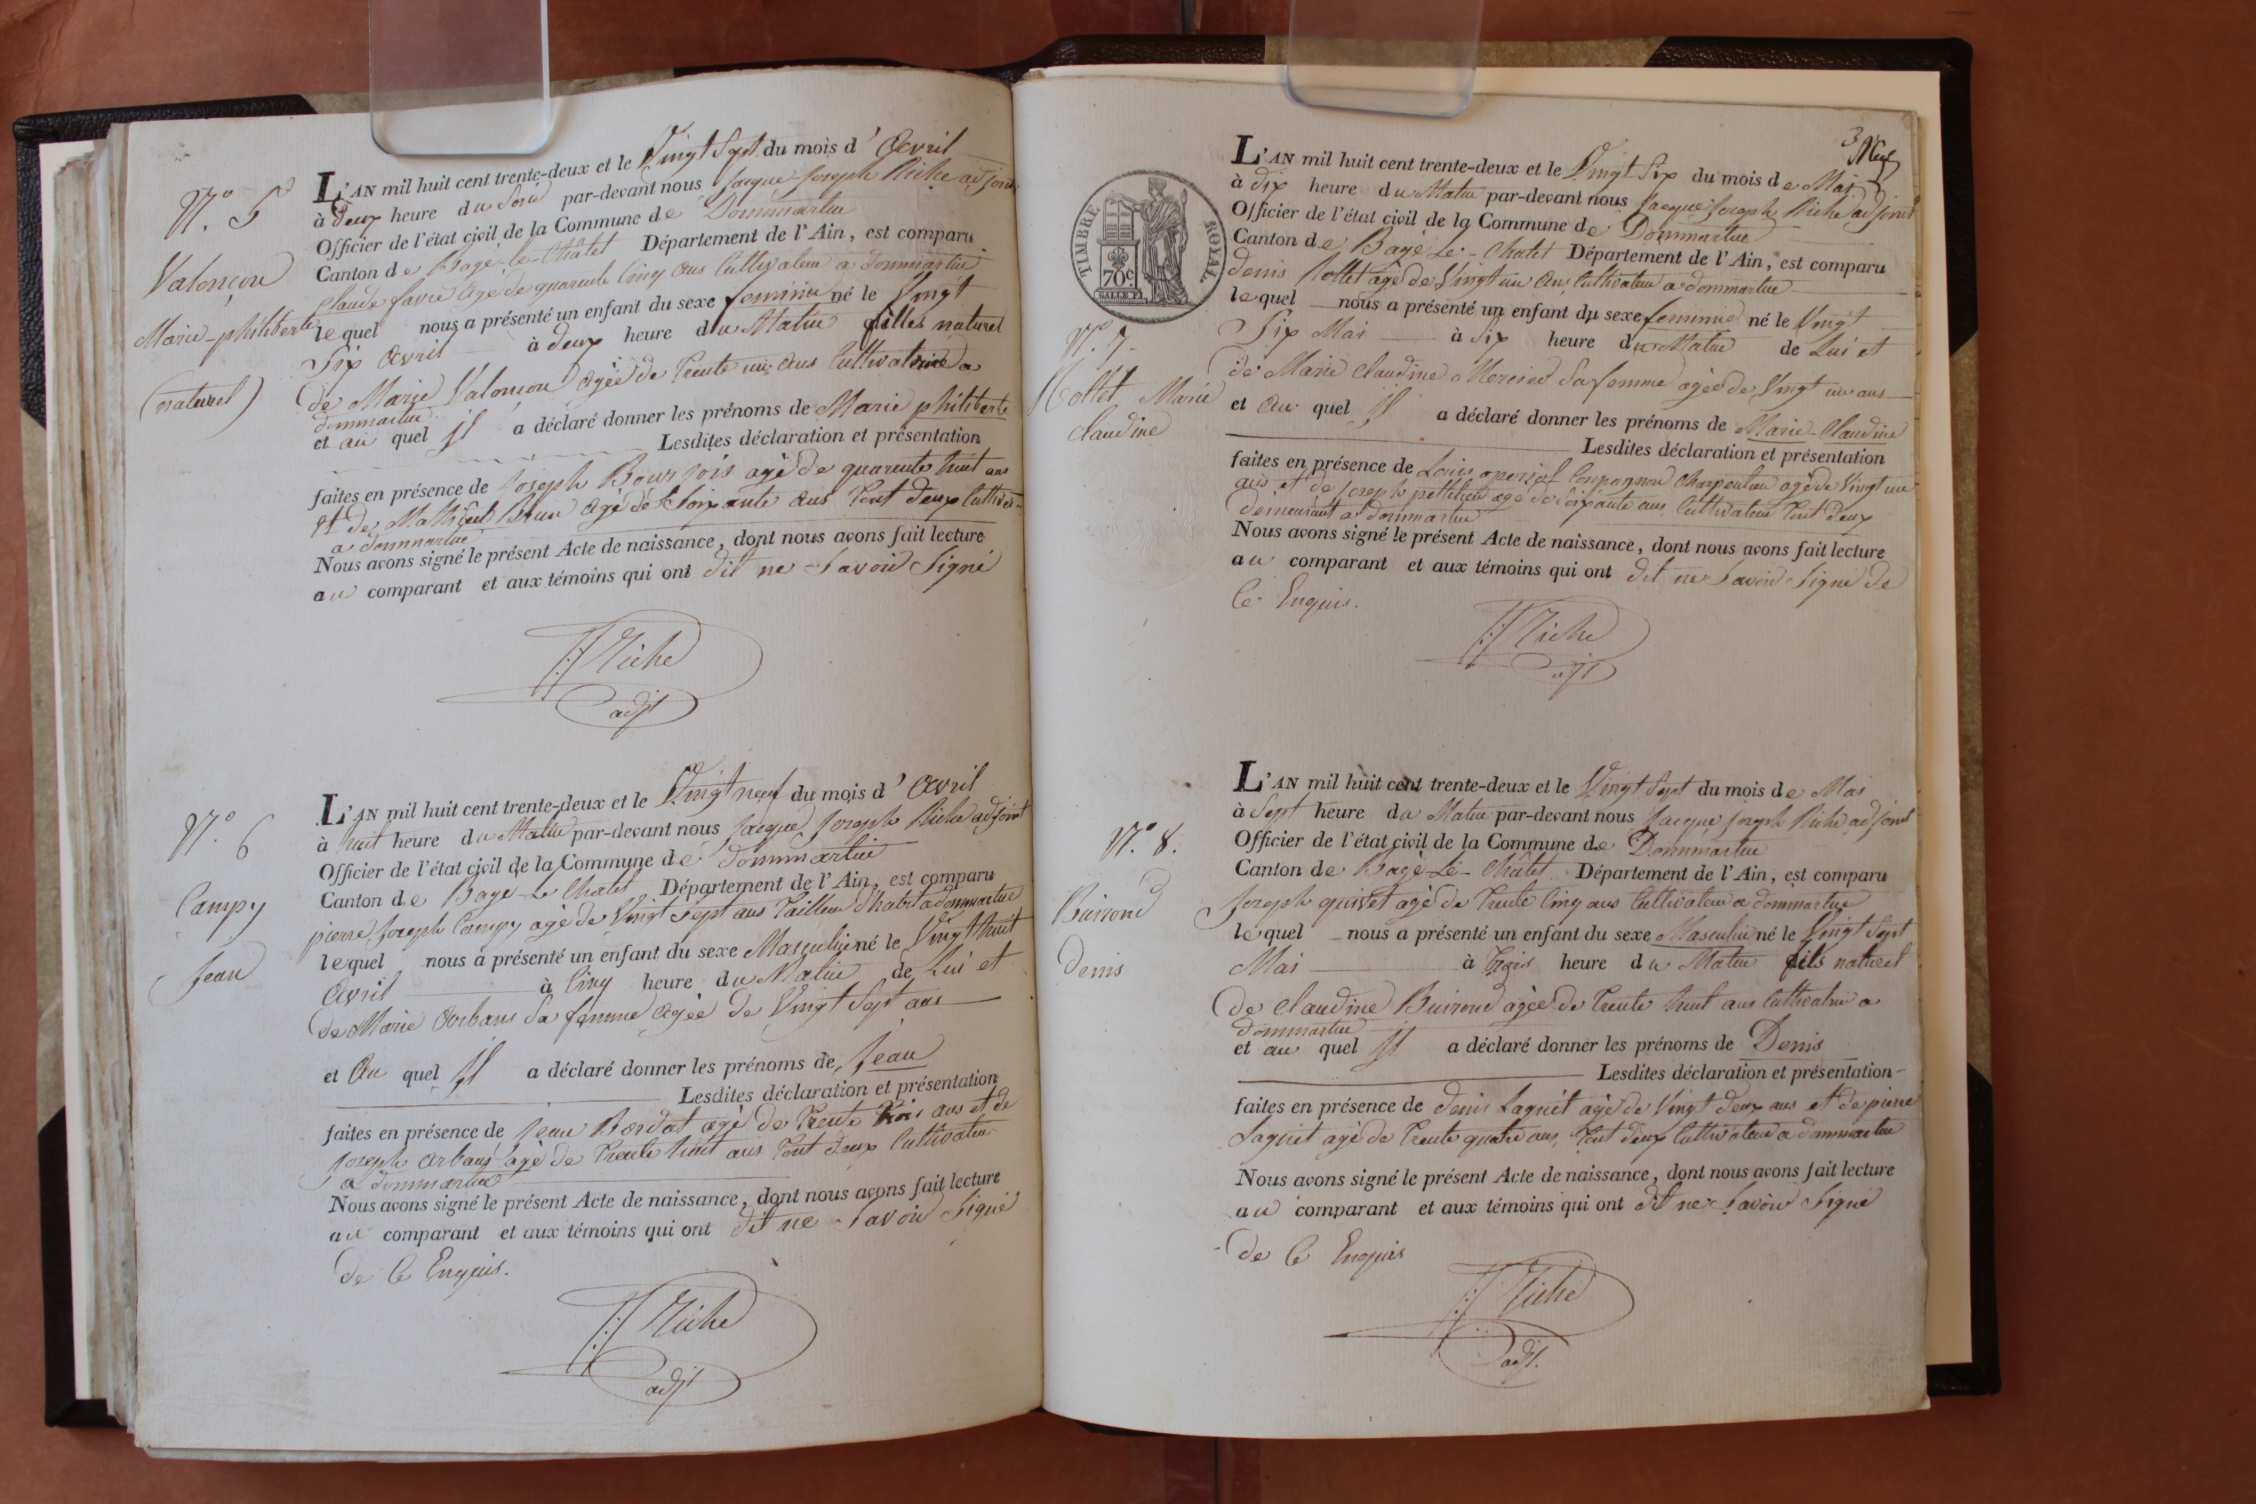 N.º 5
Valonçon
Marie-philiberte
(naturel)
L'AN mil huit cent trente-deux et le Vingt Sept du mois d'Avril
à Deux heure du Soir par-devant nous Jacque Joseph Riche adjoint
Officier de l'état civil de la Commune de Dommartin
Canton de Bagé-le-Châtel Département de l'Ain, est comparu
Claude favre agé de quarante Cinq ans Cultivateur a dommartin
lequel nous a présenté un enfant du sexe feminin né le Vingt
Six Avril à deux heure du Matin filles naturel
de Marie Valoncon agée de Trente un ans Cultivatrice a
dommartin
et au quel Il a déclaré donner les prénoms de Marie philiberte
Lesdites déclaration et présentation
faites en présence de Joseph Bourjois agé de quarante huit ans
et de Mathieu Brun agé de Soixante ans Tout deux Cultiva-
a dommartin
Nous avons signé le présent Acte de naissance, dont nous avons fait lecture
au comparant et aux témoins qui ont dit ne Savoir Signé
JJ Riche
adjt
N.º 6
Campy
Jean
L'AN mil huit cent trente-deux et le Vingt neuf du mois d'Avril
à huit heure du Matin par-devant nous Jacque Joseph Riche adjoint
Officier de l'état civil de la Commune de Dommartin
Canton de Bagé-Le Chatel Département de l'Ain, est comparu
pierre Joseph Campy agé de Vingt Sept ans Tailleur d'habit a dommartin
lequel nous a présenté un enfant du sexe Masculin né le Vingt huit
Avril à Cinq heure du Matin de Lui et
de Marie Arbans Sa femme agée de Vingt Sept ans
et Au quel Il a déclaré donner les prénoms de Jean
Lesdites déclaration et présentation
faites en présence de Jean Bordat agé de Trente Trois ans et de
Joseph Arbans agé de Trente huit ans Tout deux Cultivateur
a dommartin
Nous avons signé le présent Acte de naissance, dont nous avons fait lecture
au comparant et aux témoins qui ont dit ne Savoir Signé
de Ce Enquis.
JJ Riche
adjt
3
TIMBRE ROYAL
70c
N.º 7
Rollet Marie
Claudine
L'AN mil huit cent trente-deux et le Vingt Six du mois de Mai
à dix heure du Matin par-devant nous Jacque Joseph Riche adjoint
Officier de l'état civil de la Commune de Dommartin
Canton de Bagé-Le-Chatel Département de l'Ain, est comparu
denis Rollet agé de Vingt un an, Cultivateur a dommartin
lequel nous a présenté un enfant du sexe feminine né le Vingt
Six Mai à Six heure du Matin de Lui et
de Marie Claudine Mercier Sa femme agée de Vingt un ans
et Au quel Il a déclaré donner les prénoms de Marie-Claudine
Lesdites déclaration et présentation
faites en présence de Louis Compagnon Charpentier agé de Vingt un
ans et de Joseph agé de Soixante ans Cultivateur Tout deux
demeurant a dommartin
Nous avons signé le présent Acte de naissance, dont nous avons fait lecture
au comparant et aux témoins qui ont dit ne Savoir Signé de
Ce Enquis.
JJ Riche
ajt
N.º 8.
Buirond
Denis
L'AN mil huit cent trente-deux et le Vingt Sept du mois de Mai
à Sept heure du Matin par-devant nous Jacque Joseph Riche adjoint
Officier de l'état civil de la Commune de Dommartin
Canton de Bagé-Le-Châtel Département de l'Ain, est comparu
Joseph guivet agé de Trente Cinq ans Cultivateur a dommartin
lequel nous a présenté un enfant du sexe Masculin né le Vingt Sept
Mai à Trois heure du Matin fils naturel
de Claudine Buirond agée de Trente huit ans Cultivatrice a
dommartin
et au quel Il a déclaré donner les prénoms de Denis
Lesdites déclaration et présentation
faites en présence de denis Laguet agé de Vingt deux ans et de pierre
Laguet agé de Trente quatre ans, Tout deux Cultivateur a dommartin
Nous avons signé le présent Acte de naissance, dont nous avons fait lecture
au comparant et aux témoins qui ont dit ne Savoir Signé
de Ce Enquis
JJ Riche
adjt.